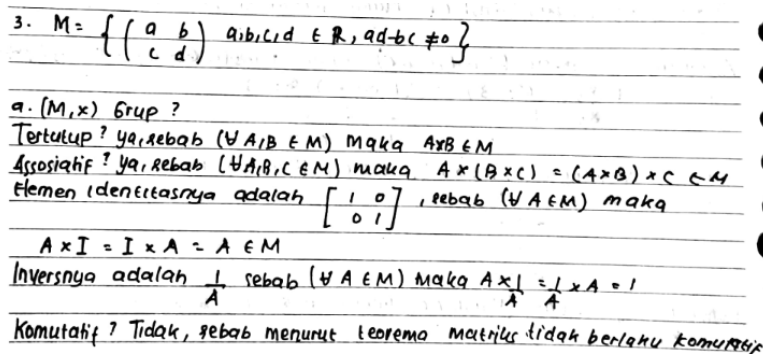 3. M = { ( a b
c d ) a,b,c,d ∈ R, ad-bc ≠ 0 }
a. (M,x) Grup ?
Tertutup? ya, sebab (∀ A,B ∈ M) maka AxB ∈ M
Assosiatif? ya, sebab (∀A,B,C ∈ M) maka A x (B x C) = (A x B) x C ∈ M
Elemen identitasnya adalah [ 1 0
0 1 ] , sebab (∀ A ∈ M) maka
A x I = I x A = A ∈ M
Inversnya adalah 1/A sebab (∀ A ∈ M) maka A x 1/A = 1/A x A = 1
Komutatif ? Tidak, sebab menurut teorema matriks tidak berlaku komutatif